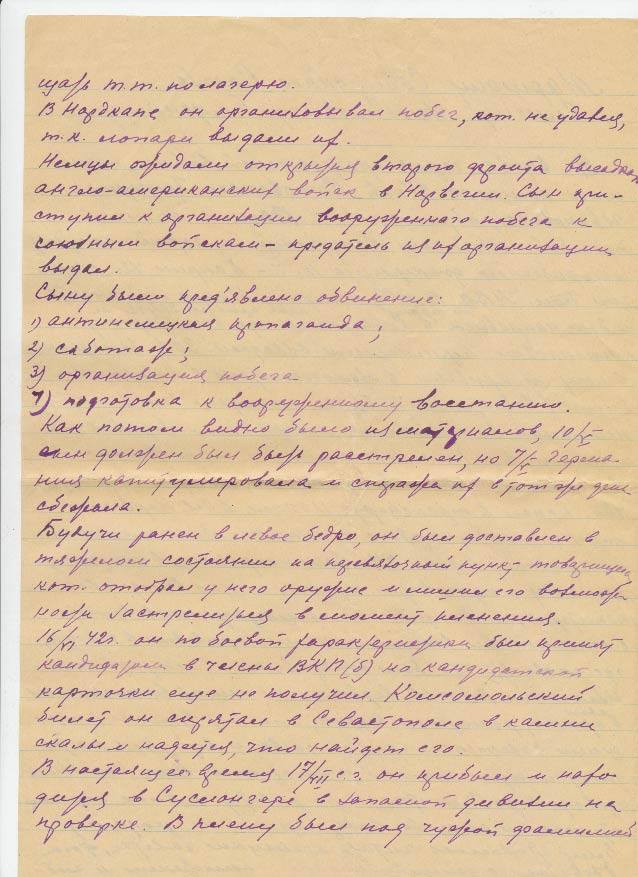 щарь т.т. по лагерю.
В Нордкапе он организовывал побег, кот. не удался,
т.к. лопари выдали их.
Немцы ожидали открытия второго фронта высадкой
англо-американских войск в Норвегии. Сын при-
ступил к организации вооруженного побега к
союзным войскам – предатель из их организации
выдал.
Сыну было пред'явлено обвинение:
1) антинемецкая пропаганда;
2) саботаж;
3) организация побега
4) подготовка к вооруженному восстанию.
Как потом видно было из материалов, 10/V
сын должен был быть расстрелян, но 7/V Герма-
ния капитулировала и стража их в тот же день
сбежала.
Будучи ранен в левое бедро, он был доставлен в
тяжелом состоянии на перевязочный пункт товарищем,
кот. отобрал у него оружие и лишил его возмож-
ности застрелиться в момент пленения.
16/VI 42г. он по боевой характеристики был принят
кандидатом в члены ВКП(б) но кандидатской
карточки еще не получил. Комсомольский
билет он спрятал в Севастополе в камни
скалы и надеется, что найдет его.
В настоящее время 17/VIII с.г. он прибыл и нахо-
дится в Суслонгере в запасной дивизии на
проверке. В плену был под чужой фамилией